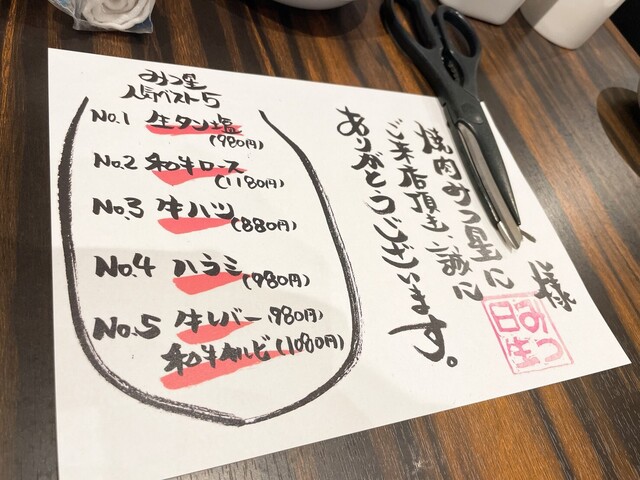 様
焼肉みつ星に
ご来店頂き、誠に
ありがとうございます。
みつ
日生
みつ星
人気ベスト5
No.1 牛タン塩
(980円)
No.2 和牛ロース
(1180円)
No.3 牛ハツ
(880円)
No.4 ハラミ
(980円)
No.5 牛レバー(980円)
和牛カルビ(1080円)